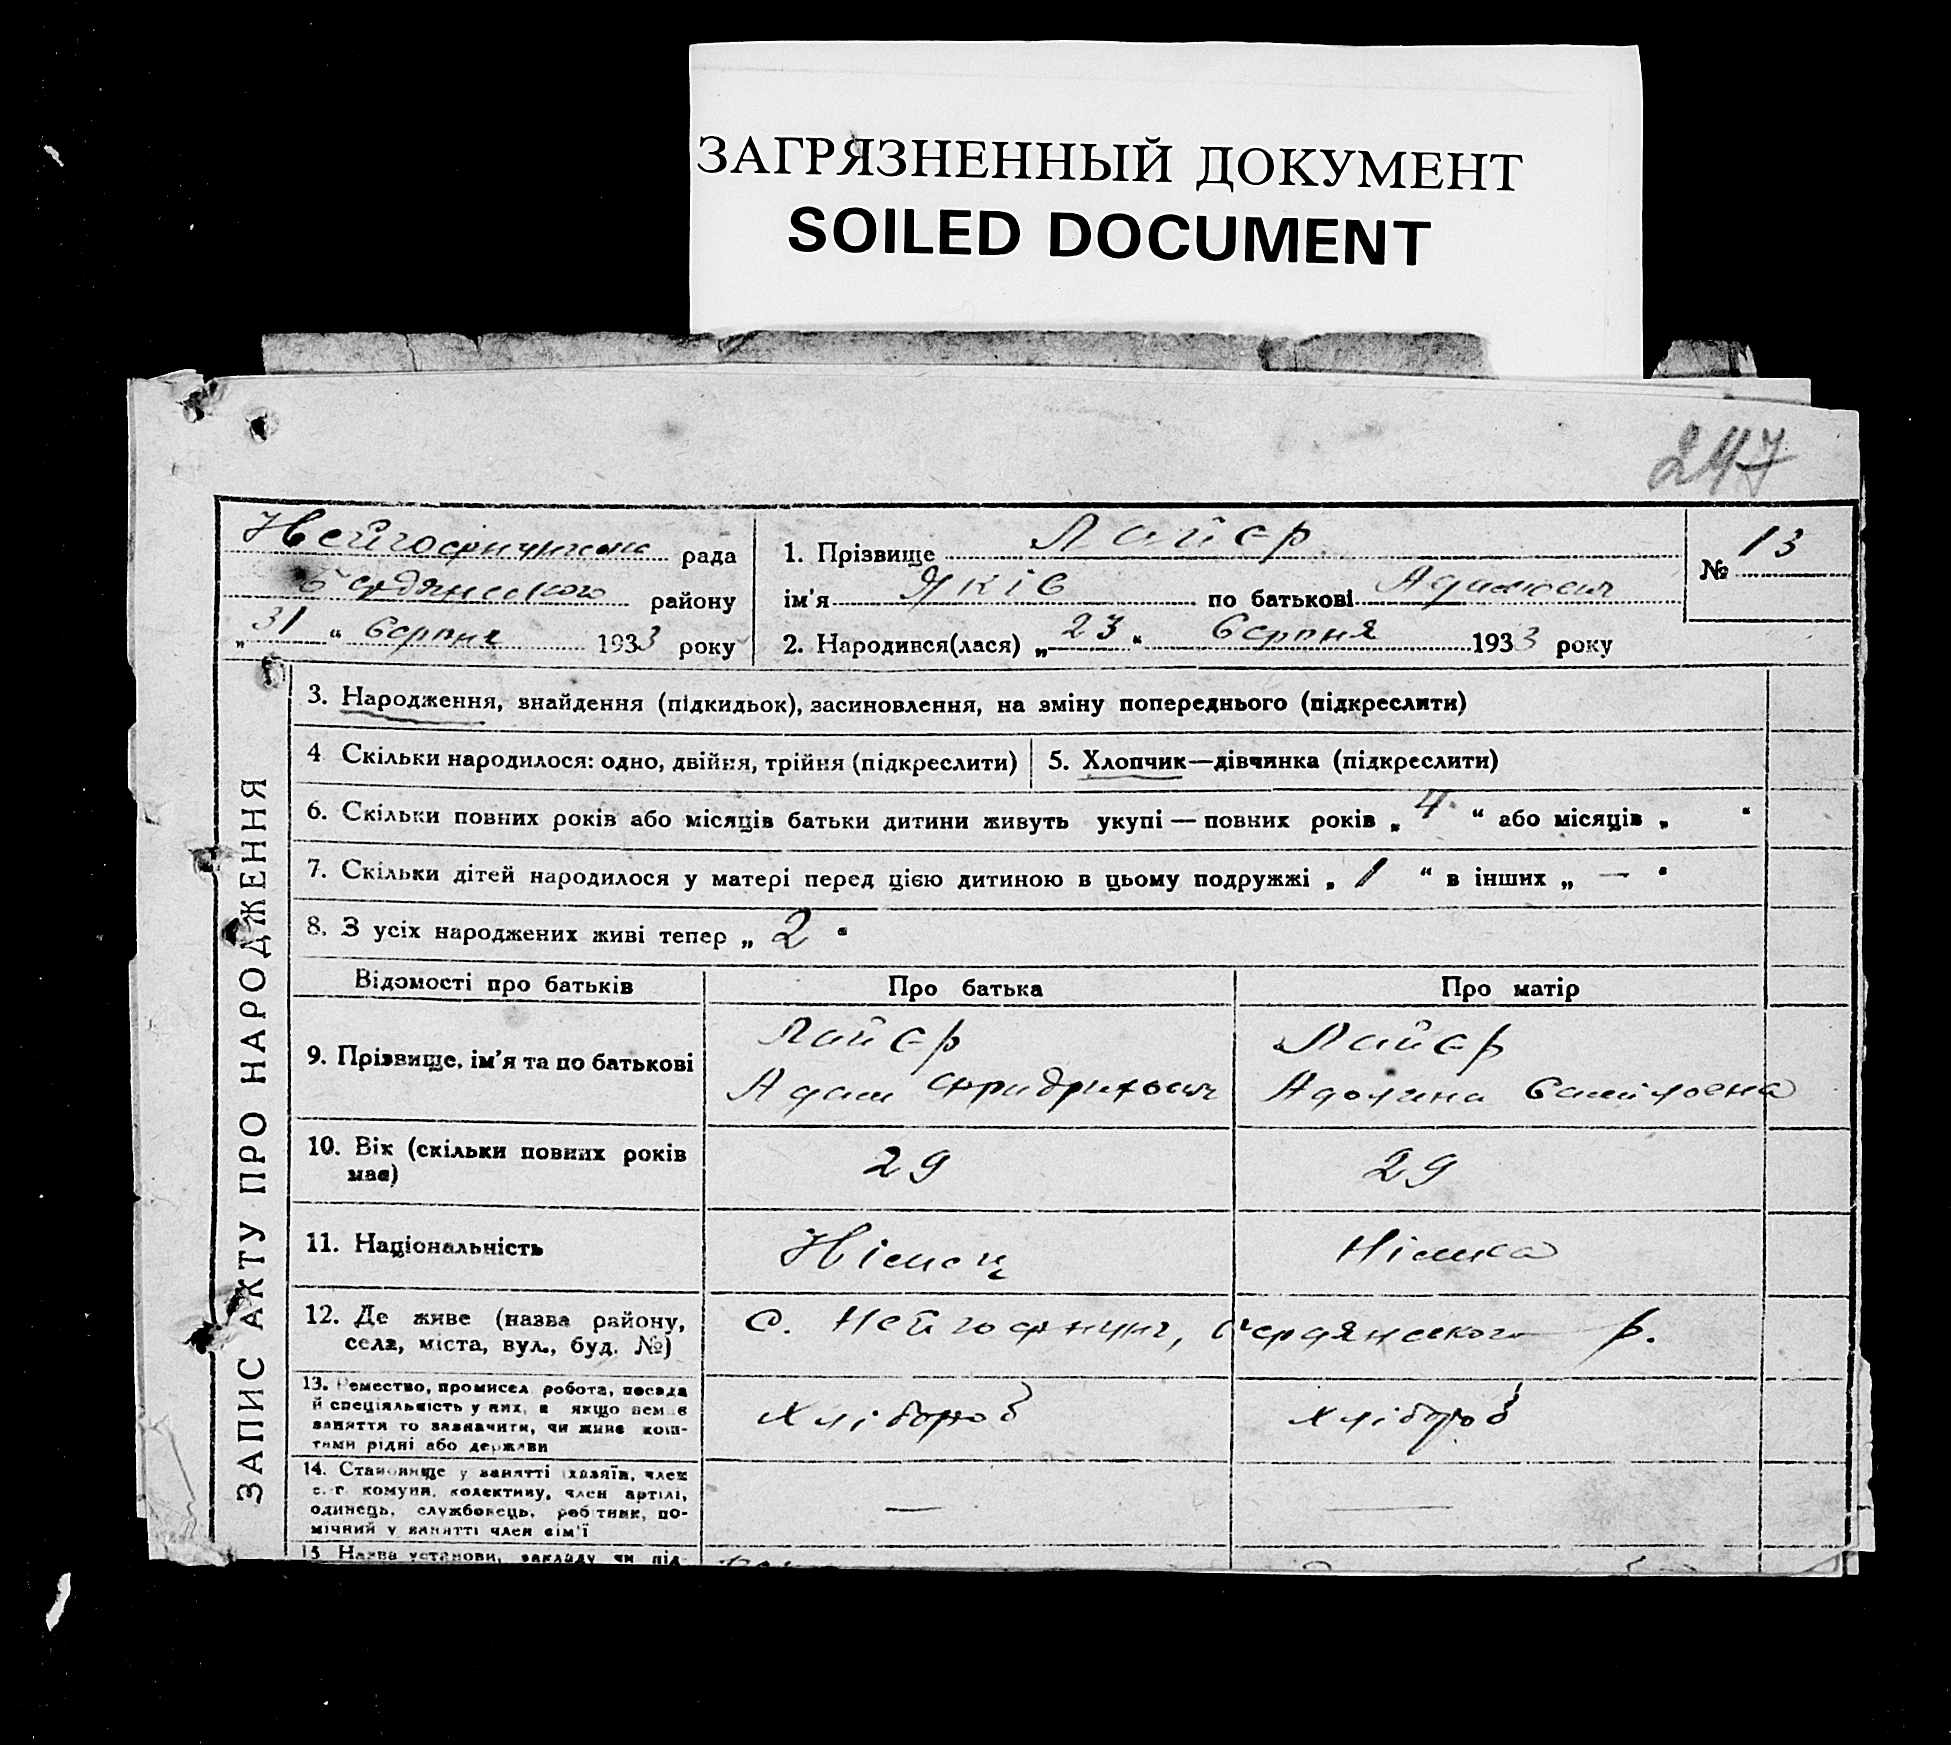 ЗАГРЯЗНЕННЫЙ ДОКУМЕНТ
SOILED DOCUMENT
247
рада
Бердянського району
„31“ Серпня 1933 року
1. Прізвище Лайєр
ім'я Яків по батькові Адамович
2. Народився(лася) „23“ Серпня 1933 року
№ 13
ЗАПИС АКТУ ПРО НАРОДЖЕННЯ
3. Народження, знайдення (підкидьок), засиновлення, на зміну попереднього (підкреслити)
4 Скільки народилося: одно, двійня, трійня (підкреслити)
5. Хлопчик—дівчинка (підкреслити)
6. Скільки повних років або місяців батьки дитини живуть укупі — повних років „4“ або місяців „ “
7. Скільки дітей народилося у матері перед цією дитиною в цьому подружжі „1“ в інших „—“
8. З усіх народжених живі тепер „2“
Відомості про батьків Про батька Про матір
9. Прізвище, ім'я та по батькові
Лайєр
Адам Фридрихович
Лайєр
Адолина Самійловна
10. Вік (скільки повних років
має)
29 29
11. Національність Німець Німка
12. Де живе (назва району,
села, міста, вул., буд. №)
с. Нейгофнунг, Бердянського р.
13. Ремество, промисел, робота, посада
й спеціяльність у них, а якщо нема є
заняття то зазначити, чи живе кош-
тами рідні або держави
Хлібороб Хлібороб
14. Становище у занятті (хазяїн, член
с.-г. комуни, колективу, член артілі,
одинець, службовець, робітник, по-
мічний у занятті член сім'ї
— —
15 Назва установи, закладу чи під-